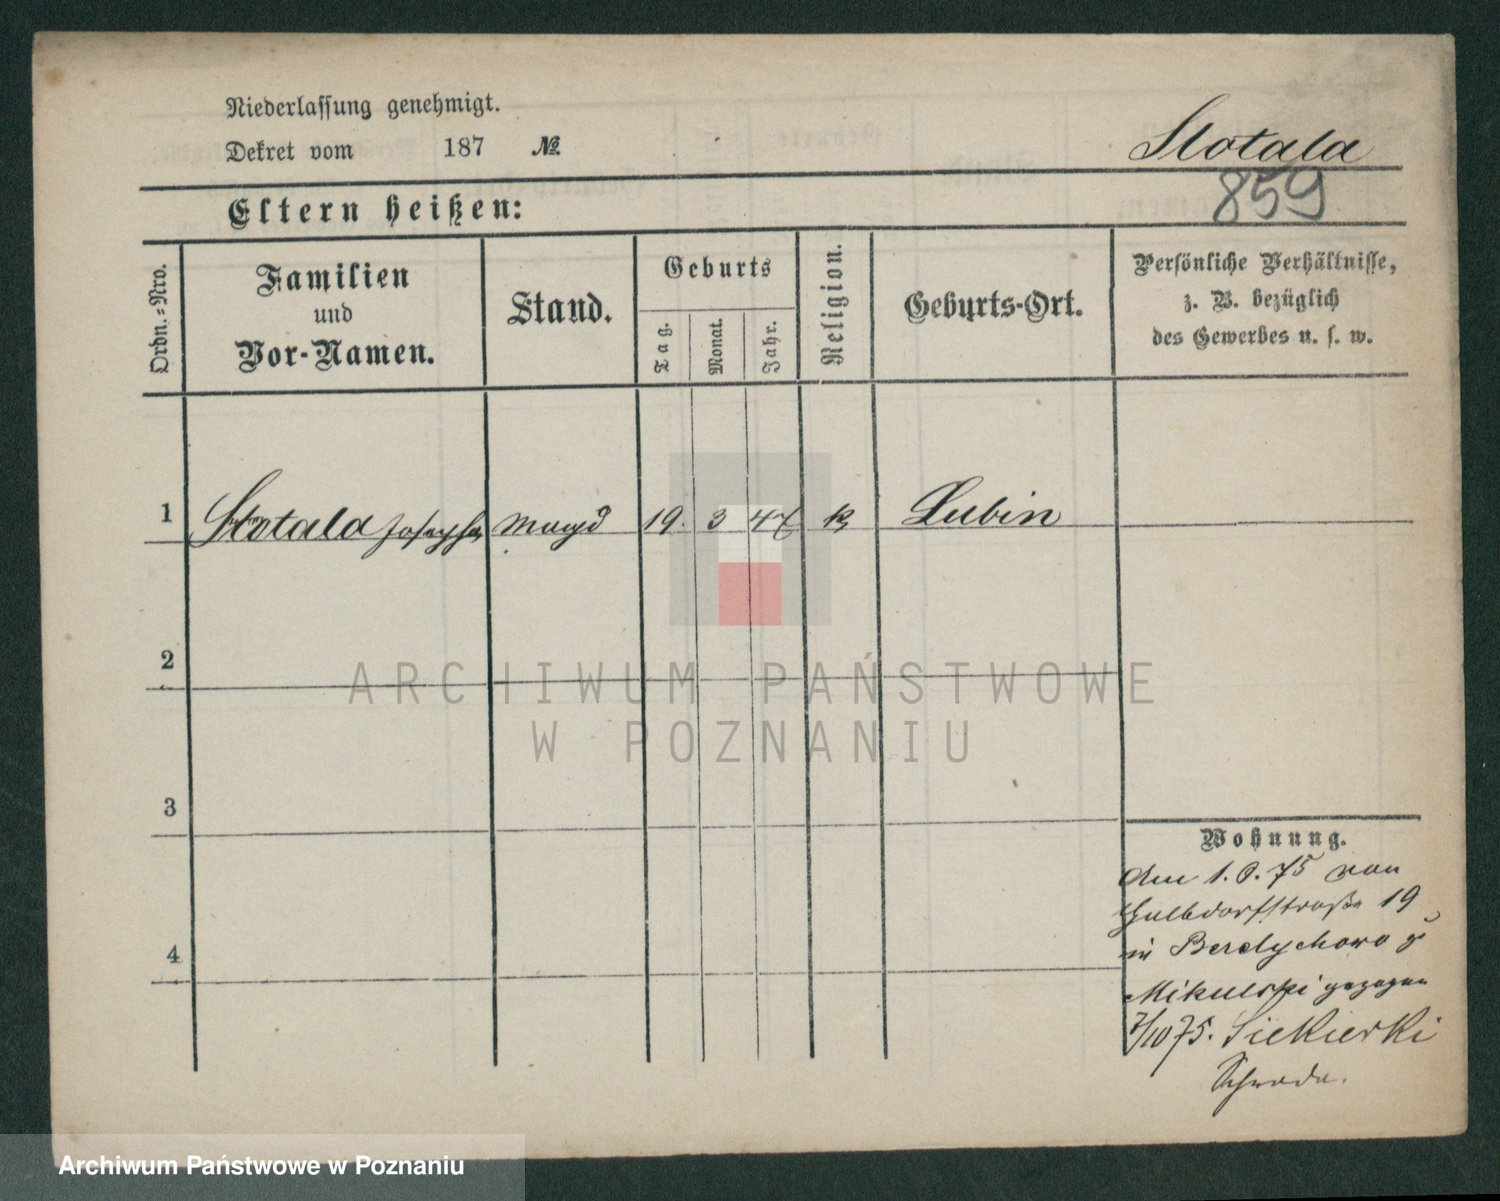 Niederlassung genehmigt.
Dekret vom 187 №.
Slotala
859
Eltern heißen:
Ordn.=Nro.
Familien
und
Vor-Namen.
Stand.
Geburts
Tag.
Monat.
Jahr.
Religion.
Geburts-Ort.
Persönliche Verhältnisse,
z. B. bezüglich
des Gewerbes u. s. w.
1 Josepha Magd 19. 3 47 k Lubin
2
3
4
Wohnung.
75 von
Halbdorfstraße 19
in Berdychowo
Mikulski gezogen
7/10 75. Siekierki
Schroda.
ARCHIWUM PAŃSTWOWE
W POZNANIU
Archiwum Państwowe w Poznaniu